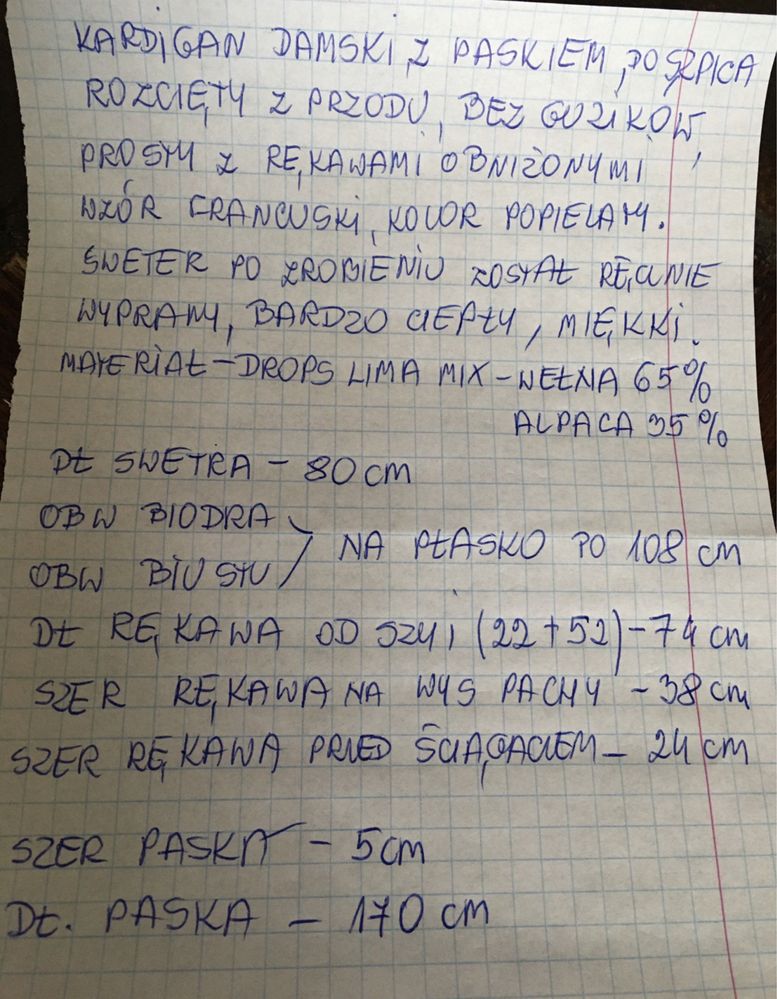 KARDIGAN DAMSKI Z PASKIEM, DO SZPICA
ROZCIĘTY Z PRZODU, BEZ GUZIKÓW,
PROSTY Z RĘKAWAMI OBNIŻONYMI
WZÓR FRANCUSKI, KOLOR POPIELATY.
SWETER PO ZROBIENIU ZOSTAŁ RĘCZNIE
WYPRANY, BARDZO CIEPŁY, MIĘKKI.
MATERIAŁ – DROPS LIMA MIX – WEŁNA 65%
ALPACA 35%
DŁ SWETRA – 80 cm
OBW BIODRA
NA PŁASKO PO 108 cm
OBW BIUSTU
DŁ RĘKAWA OD SZYI (22+52) – 74 cm
SZER RĘKAWA NA WYS PACHY – 38 cm
SZER RĘKAWA PRZED ŚCIĄGACZEM – 24 cm
SZER PASKA – 5 cm
DŁ. PASKA – 170 cm